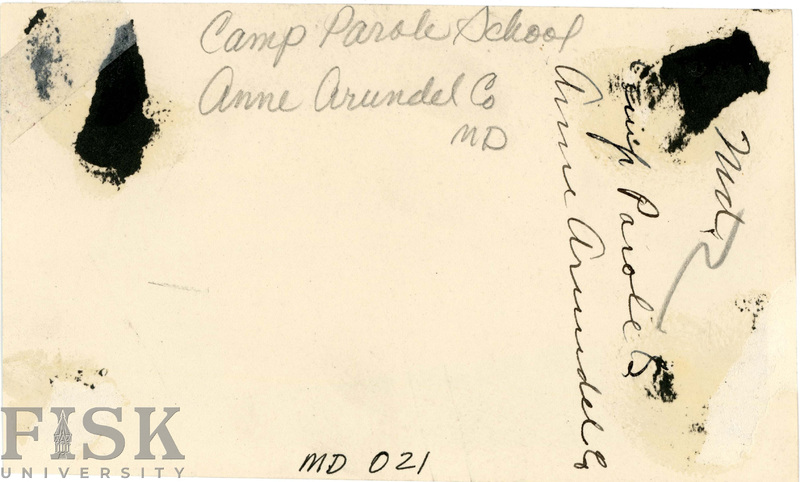 Camp Parole School
Anne Arundel Co
MD
Md.
Camp Parole S
Anne Arundel Co
MD 021
FISK
UNIVERSITY